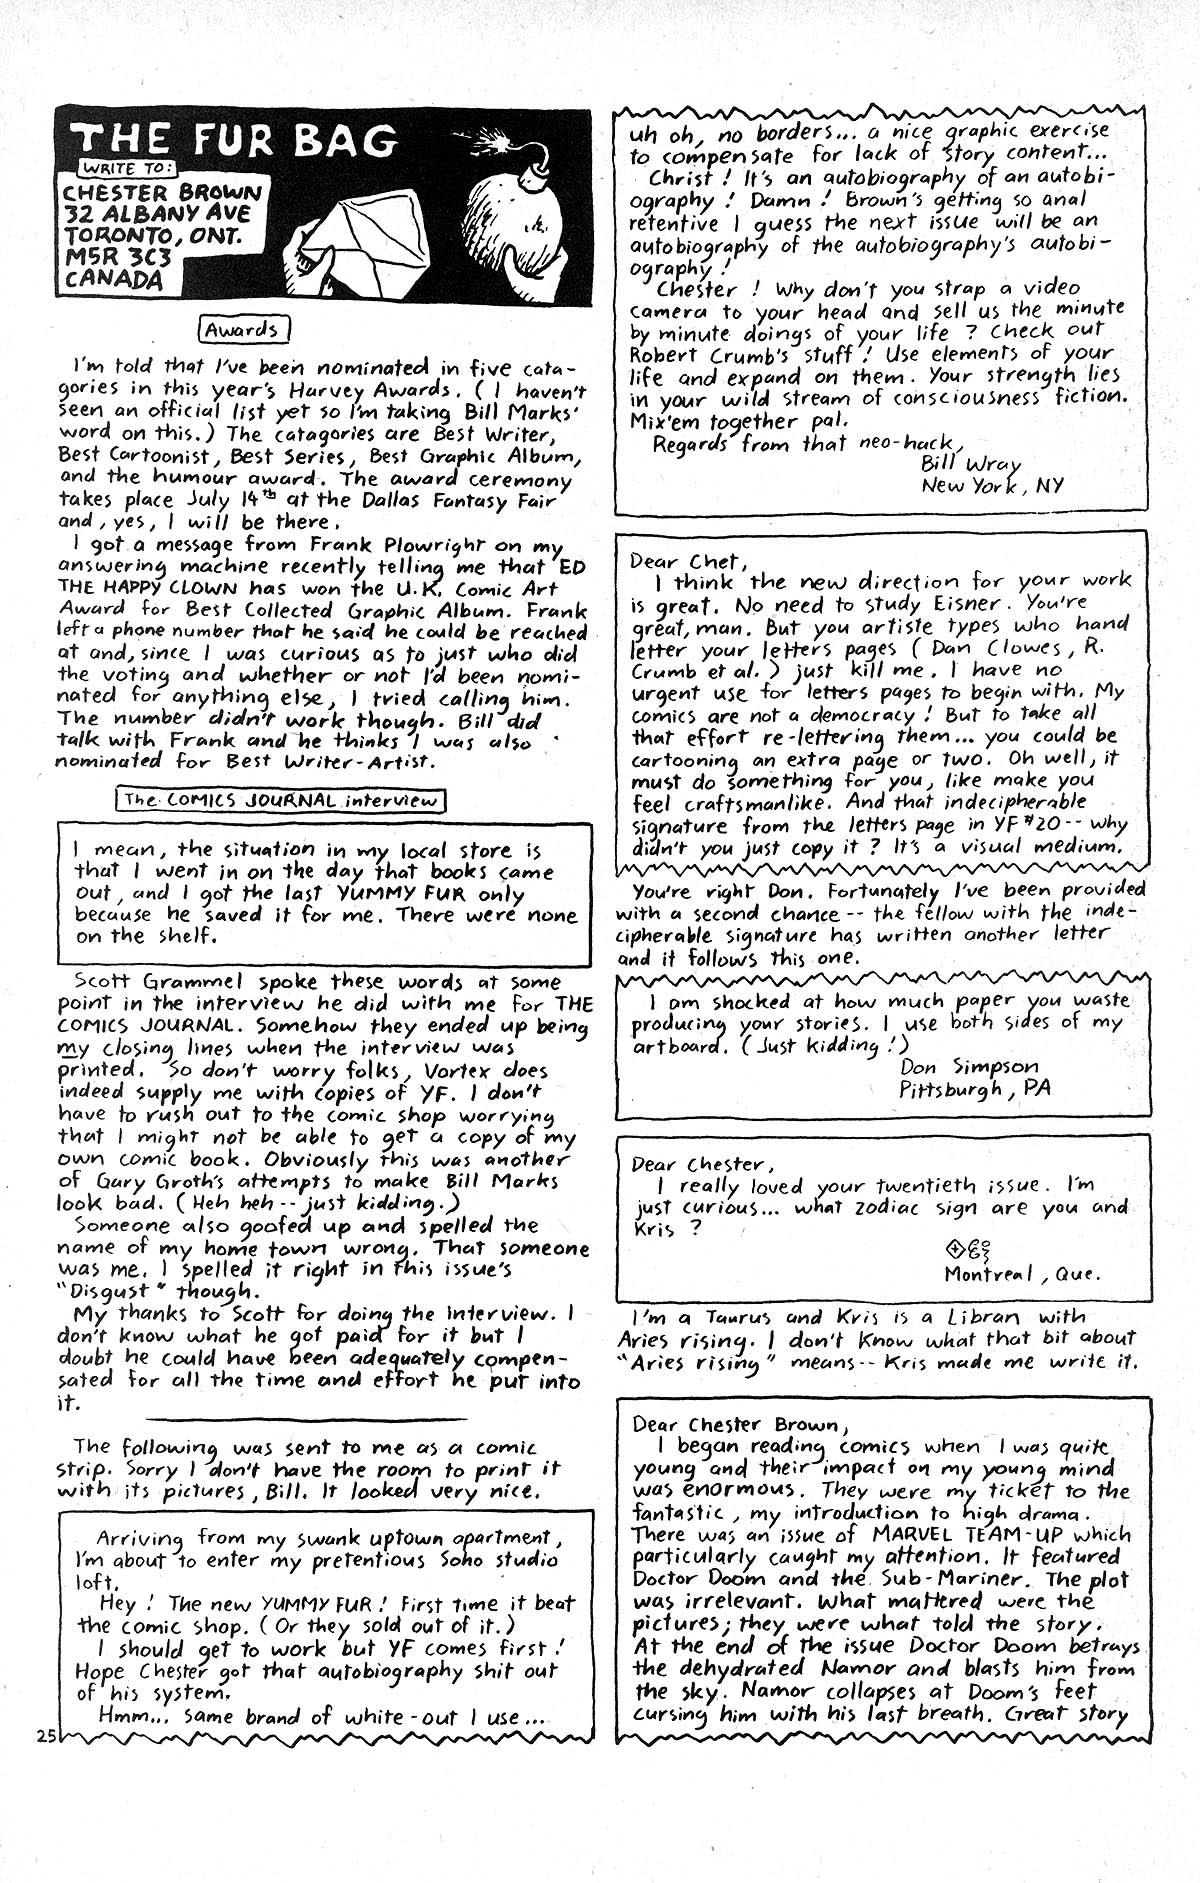 THE FUR BAG
WRITE TO:
CHESTER BROWN
32 ALBANY AVE
TORONTO, ONT.
M5R 3C3
CANADA
Awards
I'm told that I've been nominated in five cata-
gories in this year's Harvey Awards. (I haven't
seen an official list yet so I'm taking Bill Marks'
word on this.) The catagories are Best Writer,
Best Cartoonist, Best Series, Best Graphic Album,
and the humour award. The award ceremony
takes place July 14th at the Dallas Fantasy Fair
and, yes, I will be there.
I got a message from Frank Plowright on my
answering machine recently telling me that ED
THE HAPPY CLOWN has won the U.K. Comic Art
Award for Best Collected Graphic Album. Frank
left a phone number that he said he could be reached
at and, since I was curious as to just who did
the voting and whether or not I'd been nomi-
nated for anything else, I tried calling him.
The number didn't work though. Bill did
talk with Frank and he thinks I was also
nominated for Best Writer-Artist.
The COMICS JOURNAL interview
I mean, the situation in my local store is
that I went in on the day that books came
out, and I got the last YUMMY FUR only
because he saved it for me. There were none
on the shelf.
Scott Grammel spoke these words at some
point in the interview he did with me for THE
COMICS JOURNAL. Somehow they ended up being
my closing lines when the interview was
printed. So don't worry folks, Vortex does
indeed supply me with copies of YF. I don't
have to rush out to the comic shop worrying
that I might not be able to get a copy of my
own comic book. Obviously this was another
of Gary Groth's attempts to make Bill Marks
look bad. (Heh heh -- just kidding.)
Someone also goofed up and spelled the
name of my home town wrong. That someone
was me. I spelled it right in this issue's
"Disgust" though.
My thanks to Scott for doing the interview. I
don't know what he got paid for it but I
doubt he could have been adequately compen-
sated for all the time and effort he put into
it.
The following was sent to me as a comic
strip. Sorry I don't have the room to print it
with its pictures, Bill. It looked very nice.
Arriving from my swank uptown apartment,
I'm about to enter my pretentious Soho studio
loft.
Hey! The new YUMMY FUR! First time it beat
the comic shop. (Or they sold out of it.)
I should get to work but YF comes first!
Hope Chester got that autobiography shit out
of his system.
Hmm... same brand of white-out I use...
25
uh oh, no borders... a nice graphic exercise
to compensate for lack of story content...
Christ! It's an autobiography of an autobi-
ography! Damn! Brown's getting so anal
retentive I guess the next issue will be an
autobiography of the autobiography's autobi-
ography!
Chester! Why don't you strap a video
camera to your head and sell us the minute
by minute doings of your life? Check out
Robert Crumb's stuff! Use elements of your
life and expand on them. Your strength lies
in your wild stream of consciousness fiction.
Mix'em together pal.
Regards from that neo-hack,
Bill Wray
New York, NY
Dear Chet,
I think the new direction for your work
is great. No need to study Eisner. You're
great, man. But you artiste types who hand
letter your letters pages (Dan Clowes, R.
Crumb et al.) just kill me. I have no
urgent use for letters pages to begin with. My
comics are not a democracy! But to take all
that effort re-lettering them... you could be
cartooning an extra page or two. Oh well, it
must do something for you, like make you
feel craftsmanlike. And that indecipherable
signature from the letters page in YF #20 -- why
didn't you just copy it? It's a visual medium.
You're right Don. Fortunately I've been provided
with a second chance -- the fellow with the inde-
cipherable signature has written another letter
and it follows this one.
I am shocked at how much paper you waste
producing your stories. I use both sides of my
artboard. (Just kidding!)
Don Simpson
Pittsburgh, PA
Dear Chester,
I really loved your twentieth issue. I'm
just curious... what zodiac sign are you and
Kris?
Montreal, Que.
I'm a Taurus and Kris is a Libran with
Aries rising. I don't know what that bit about
"Aries rising" means -- Kris made me write it.
Dear Chester Brown,
I began reading comics when I was quite
young and their impact on my young mind
was enormous. They were my ticket to the
fantastic, my introduction to high drama.
There was an issue of MARVEL TEAM-UP which
particularly caught my attention. It featured
Doctor Doom and the Sub-Mariner. The plot
was irrelevant. What mattered were the
pictures; they were what told the story.
At the end of the issue Doctor Doom betrays
the dehydrated Namor and blasts him from
the sky. Namor collapses at Doom's feet
cursing him with his last breath. Great story